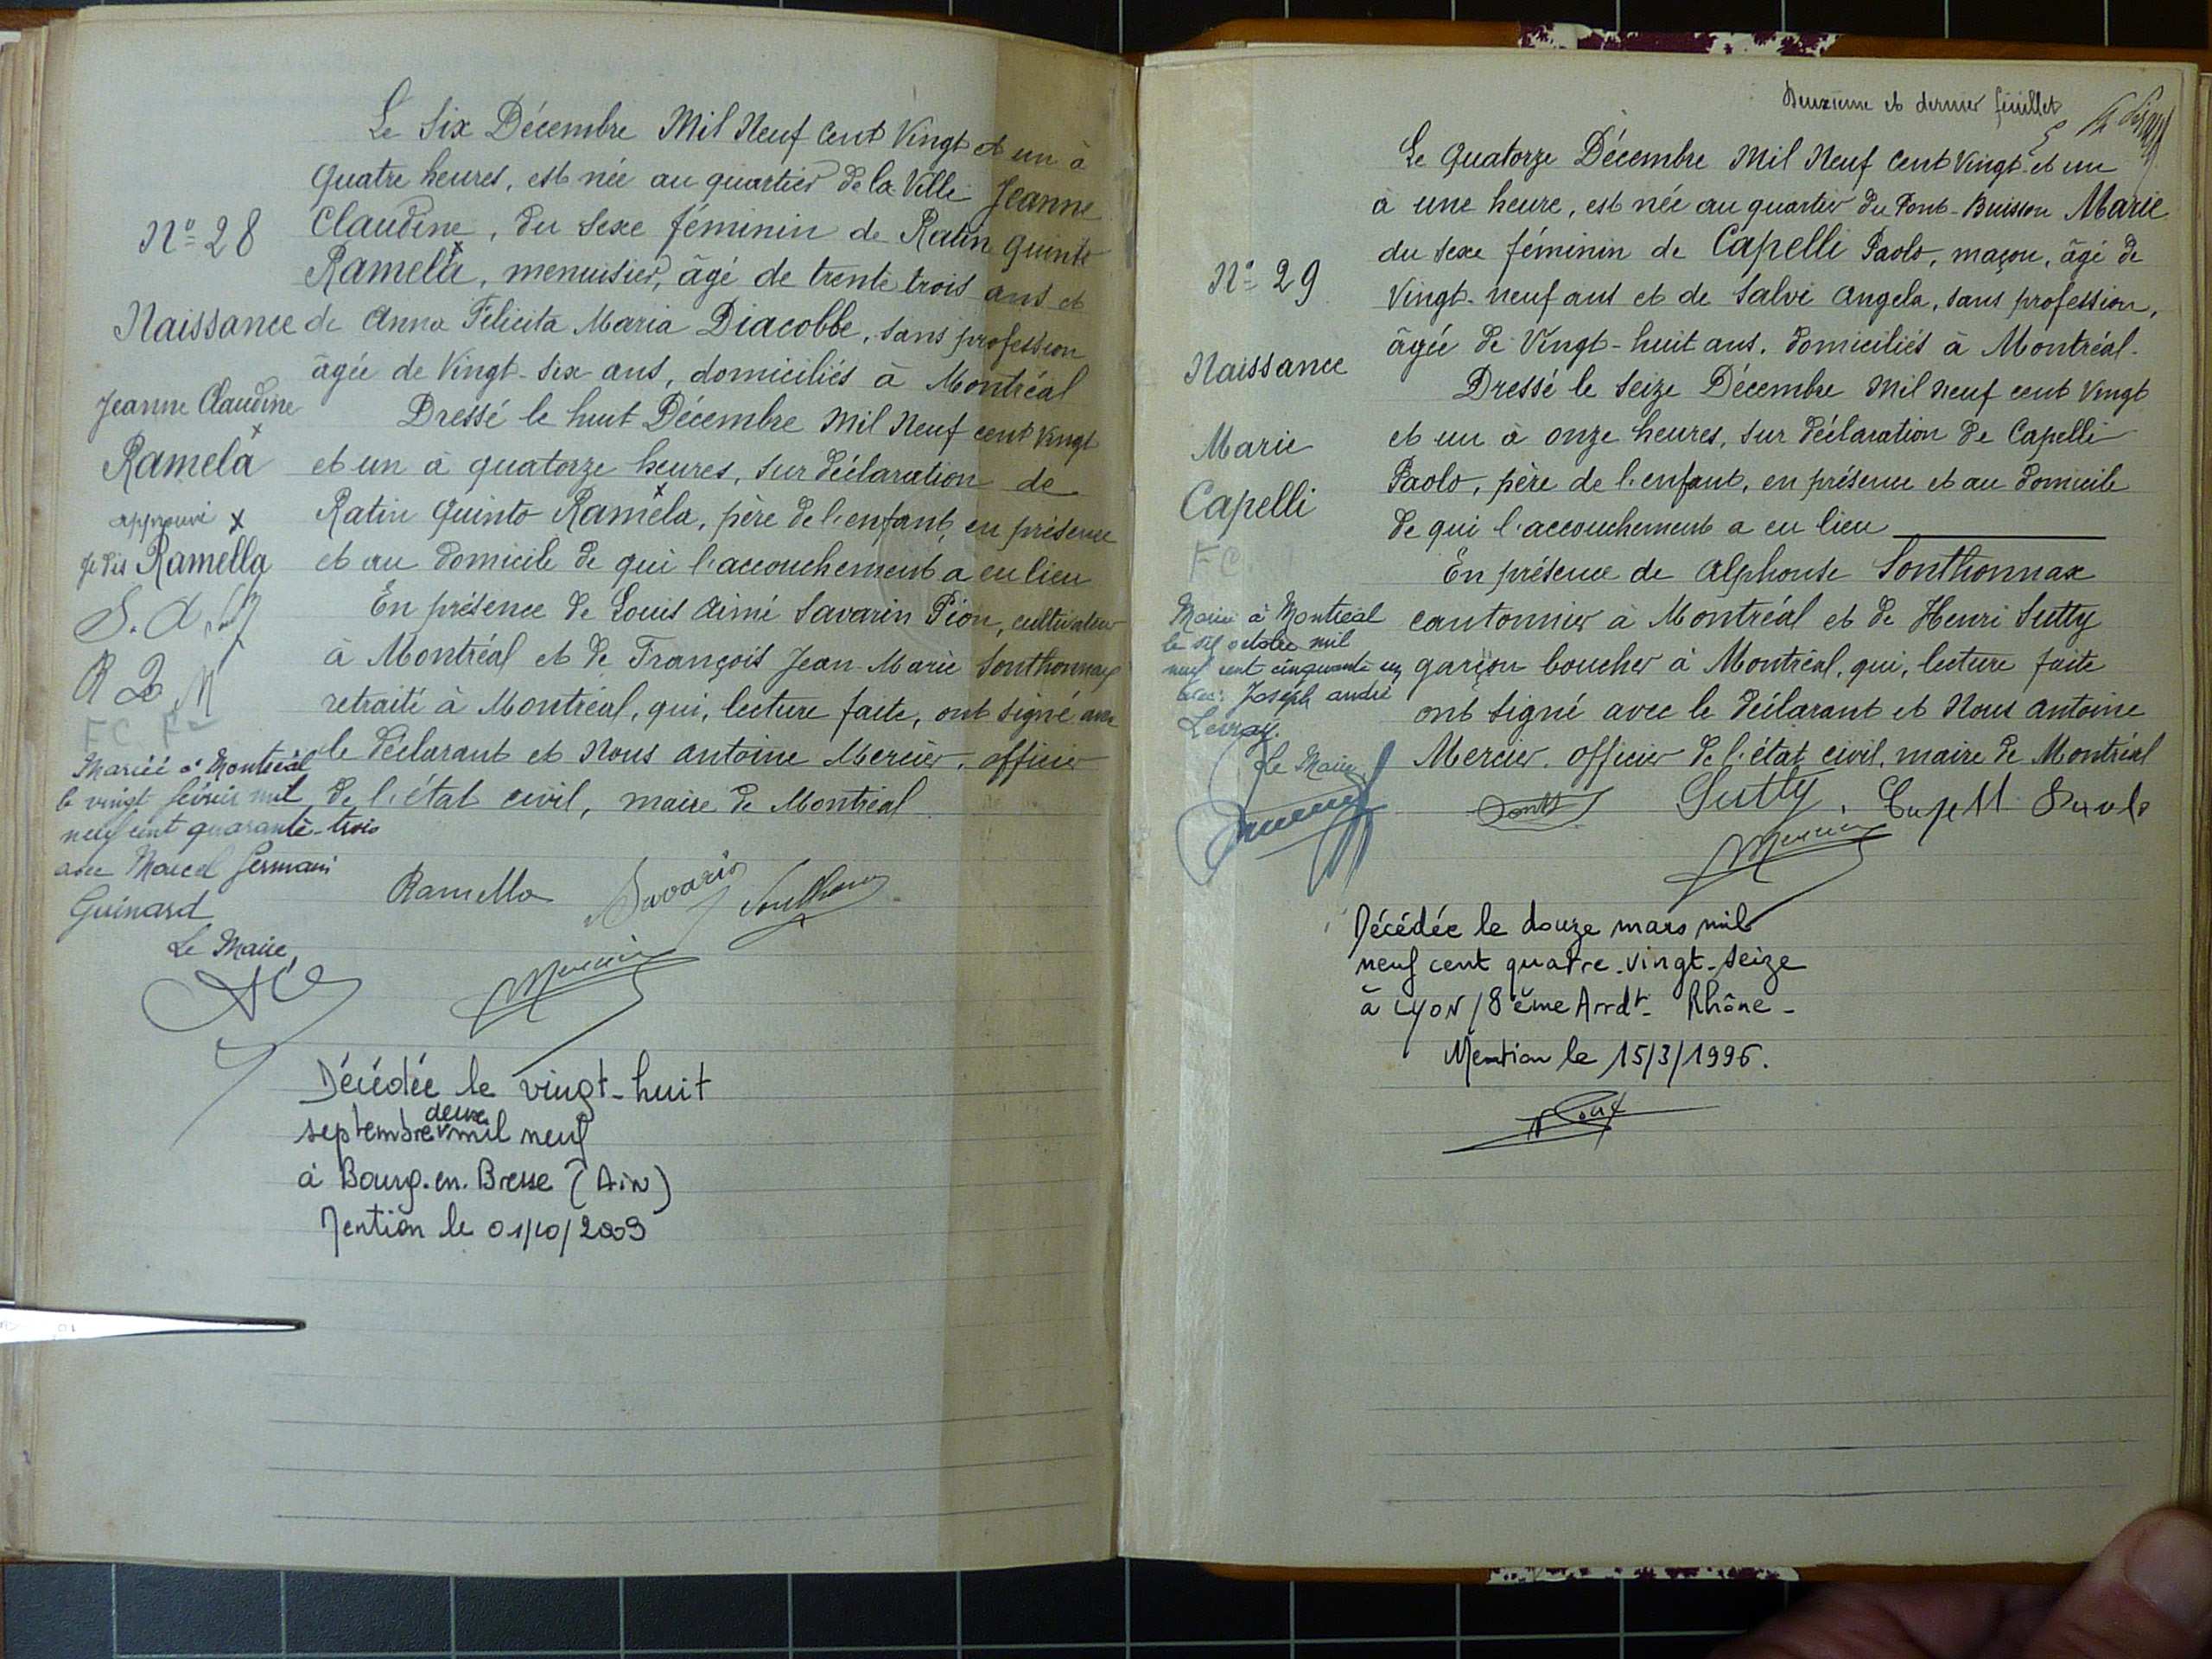 Le Six Décembre Mil Neuf Cent Vingt et un à
quatre heures, est née au quartier de la Ville Jeanne
Claudine, du sexe féminin de Ratin Quinto
Ramela, menuisier, âgé de trente trois ans et
de Anna Félicita Maria Diacobbe, sans profession
âgée de Vingt-six ans, domiciliés à Montréal
Dressé le huit Décembre Mil Neuf cent Vingt
et un à quatorze heures, sur déclaration de
Ratin Quinto Ramela, père de l'enfant, en présence
et au domicile de qui l'accouchement a eu lieu
En présence de Louis Aimé Savarin Pion, cultivateur
à Montréal et de François Jean-Marie Sonthonnax
retraité à Montréal, qui, lecture faite, ont signé avec
le déclarant et Nous Antoine Mercier, officier
de l'état civil, maire de Montréal
N° 28
Naissance
Jeanne Claudine
Ramela x
approuvé x
je dis Ramella
FC
Mariée à Montréal
le vingt février mil
neuf cent quarante-trois
avec Marcel Germain
Guinard
Le Maire,
Ramella Savarin Sonthonnax
Mercier
Décédée le vingt-huit
septembre deux mil neuf
à Bourg.en.Bresse (Ain)
Mention le 01/10/2009
Deuxième et dernier feuillet
Le Quatorze Décembre Mil Neuf Cent Vingt et un
à une heure, est née au quartier du Pont-Buisson Marie
du sexe féminin de Capelli Paolo, maçon, âgé de
Vingt-neuf ans et de Salvi Angela, sans profession,
âgée de Vingt-huit ans, domiciliés à Montréal.
Dressé le seize Décembre Mil Neuf cent Vingt
et un à onze heures, sur déclaration de Capelli
Paolo, père de l'enfant, en présence et au domicile
de qui l'accouchement a eu lieu
En présence de Alphonse Sonthonnax
cantonnier à Montréal et de Henri Sutty
garçon boucher à Montréal, qui, lecture faite
ont signé avec le déclarant et Nous Antoine
Mercier, officier de l'état civil, maire de Montréal
N° 29
Naissance
Marie
Capelli
FC
Mariée à Montréal
le six octobre mil
neuf cent cinquante un
avec Joseph André
Le Maire
Sutty. Capelli Paolo
Mercier
Décédée le douze mars mil
neuf cent quatre-vingt-seize
à LYON / 8ème Arrdt - Rhône -
Mention le 15/3/1996.